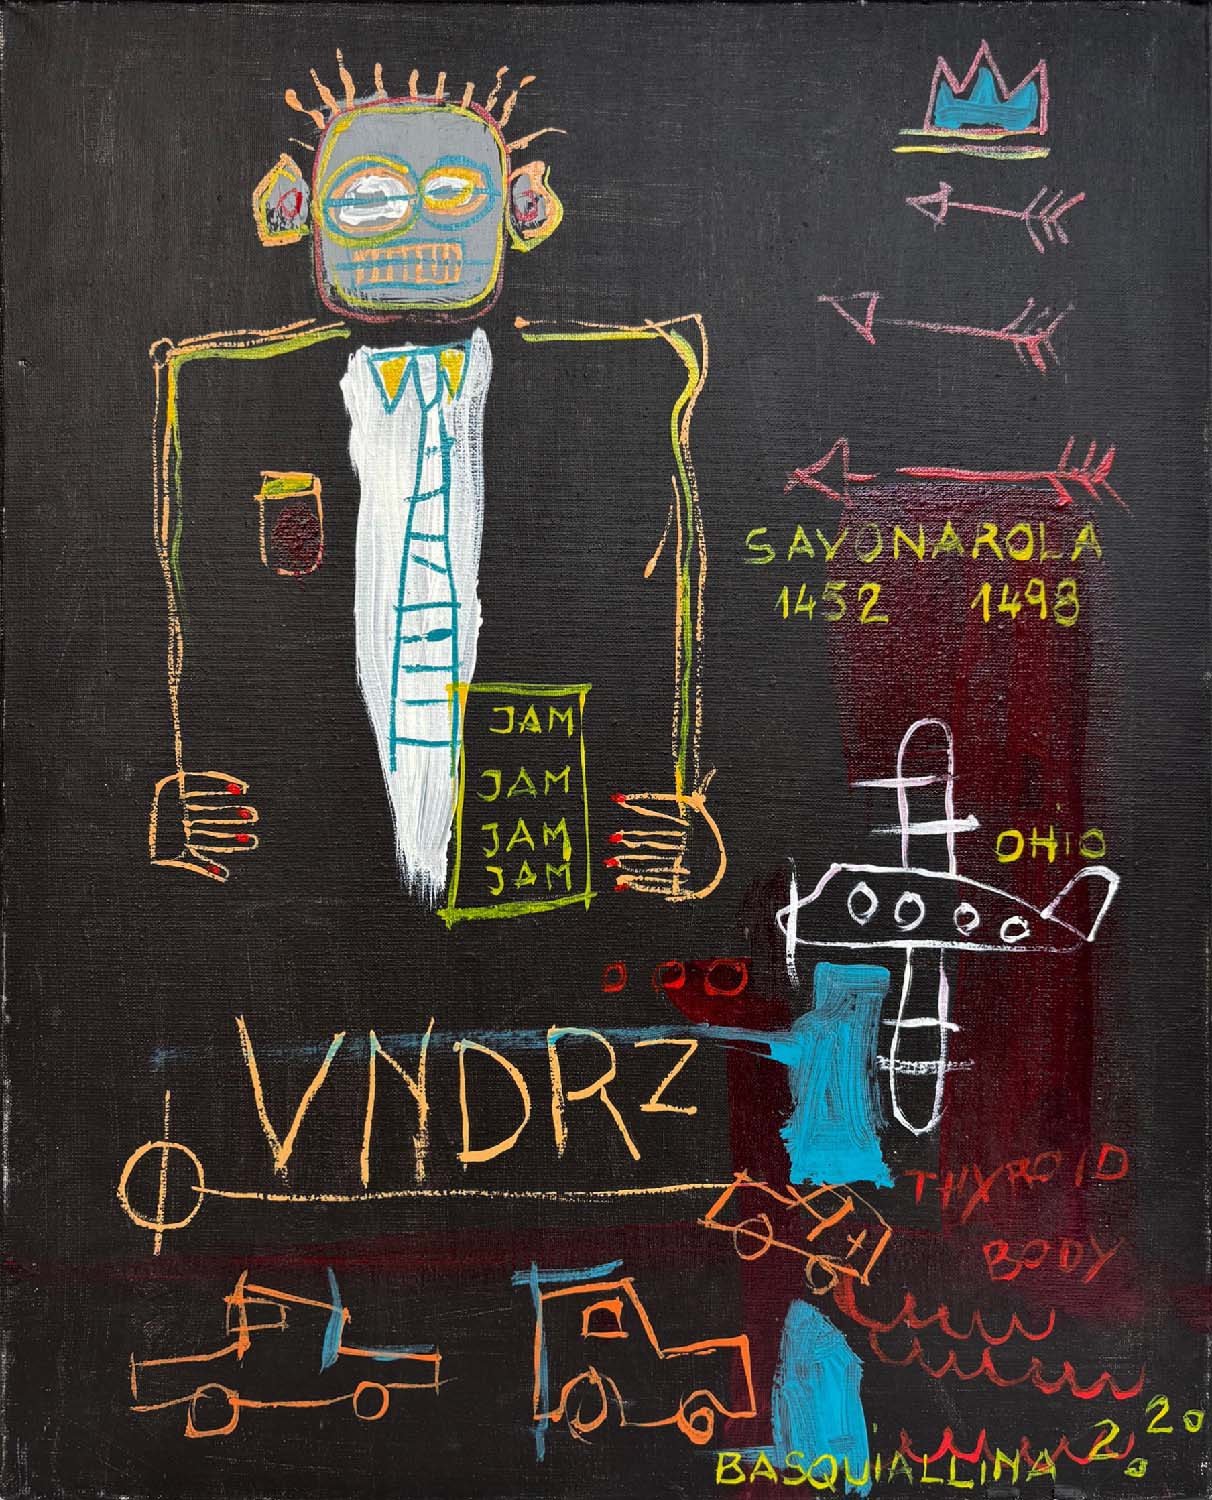 SAVONAROLA
1452 1498
JAM
JAM
JAM
JAM
OHIO
VNDRZ
THYROID
BODY
BASQUiALLiNA 2.20